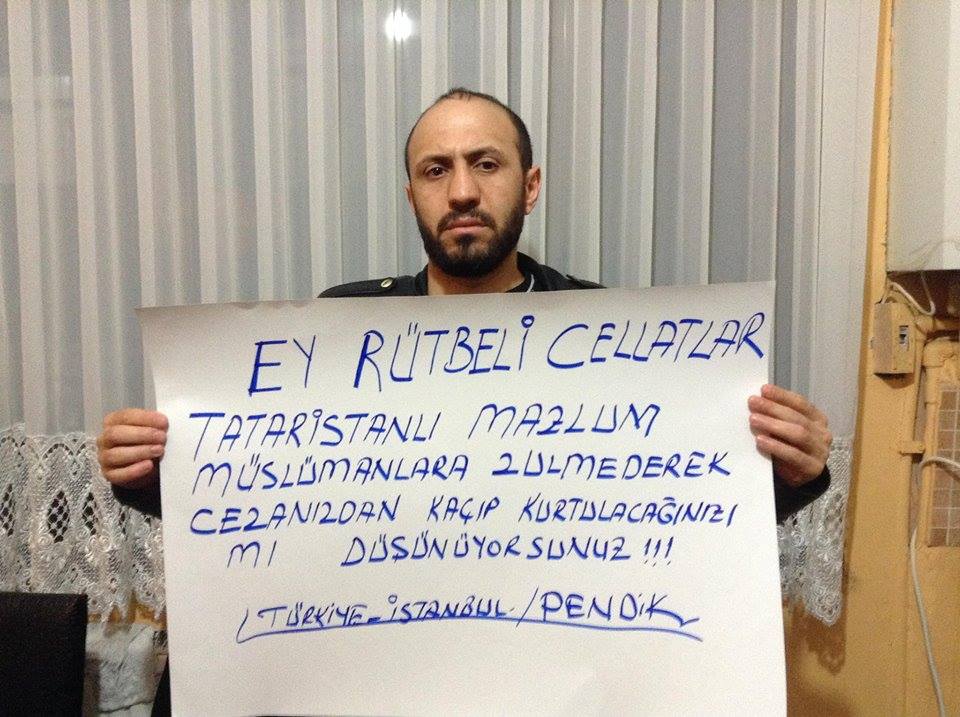 EY RÜTBELİ CELLATLAR
TATARİSTANLI MAZLUM
MÜSLÜMANLARA ZULMEDEREK
CEZANIZDAN KAÇIP KURTULACAĞINIZI
MI DÜŞÜNÜYORSUNUZ !!!
/TÜRKİYE-İSTANBUL./PENDİK